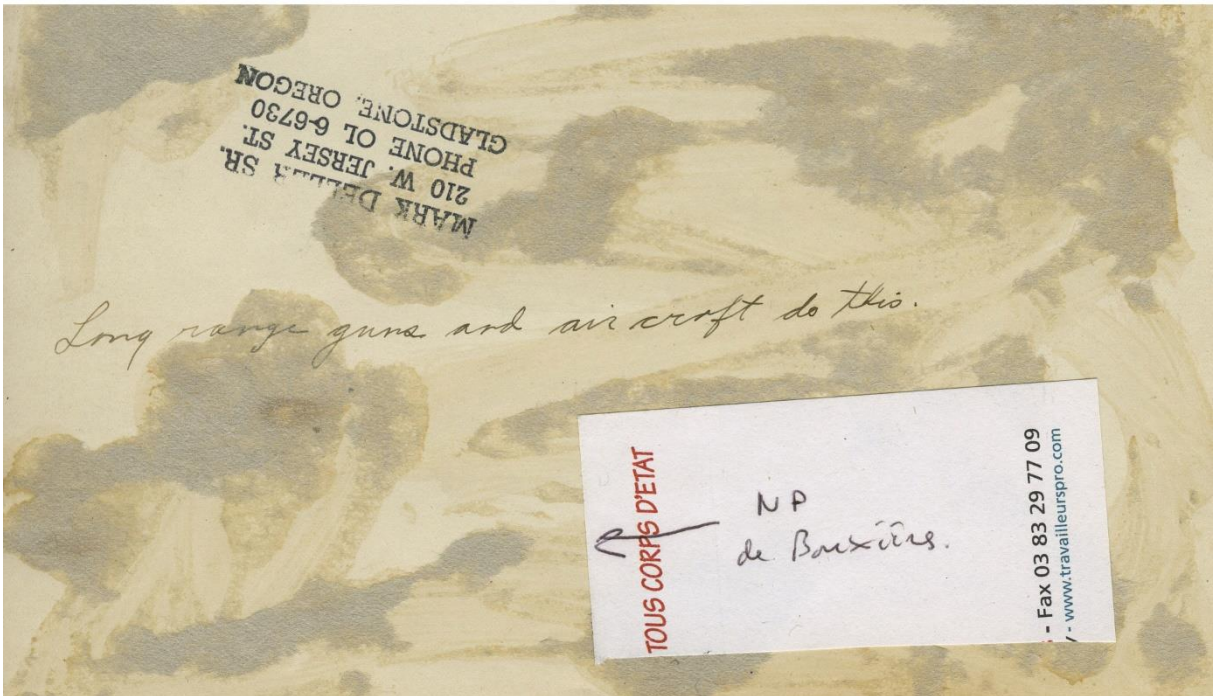 MARK DELLER SR.
210 W. JERSEY ST.
PHONE OL 6-6730
GLADSTONE, OREGON
Long range guns and air craft do this.
TOUS CORPS D'ETAT
NP
de Bouxières.
- Fax 03 83 29 77 09
- www.travailleurspro.com